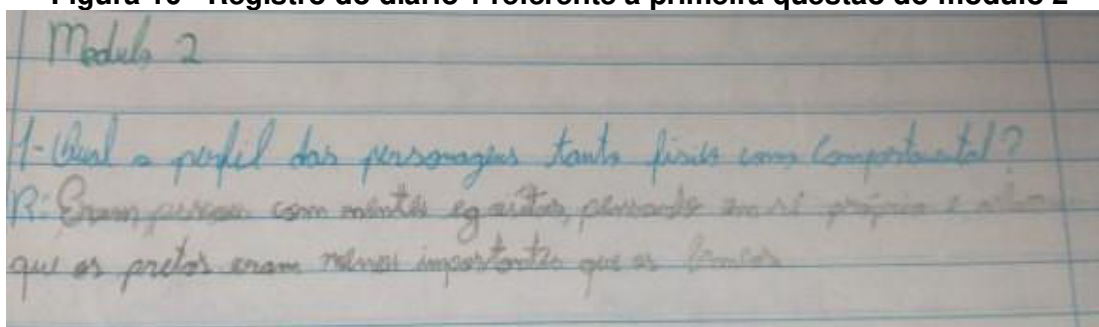 Figura 10 - Registro do diário 1 referente a primeira questão do módulo 2
Modulo 2
1- Qual o perfil das personagens tanto fisico como Comportamental?
R: Eram pessoas com mentes egoistas, pensando em si próprio e
que os pretos eram menos importantes que os brancos